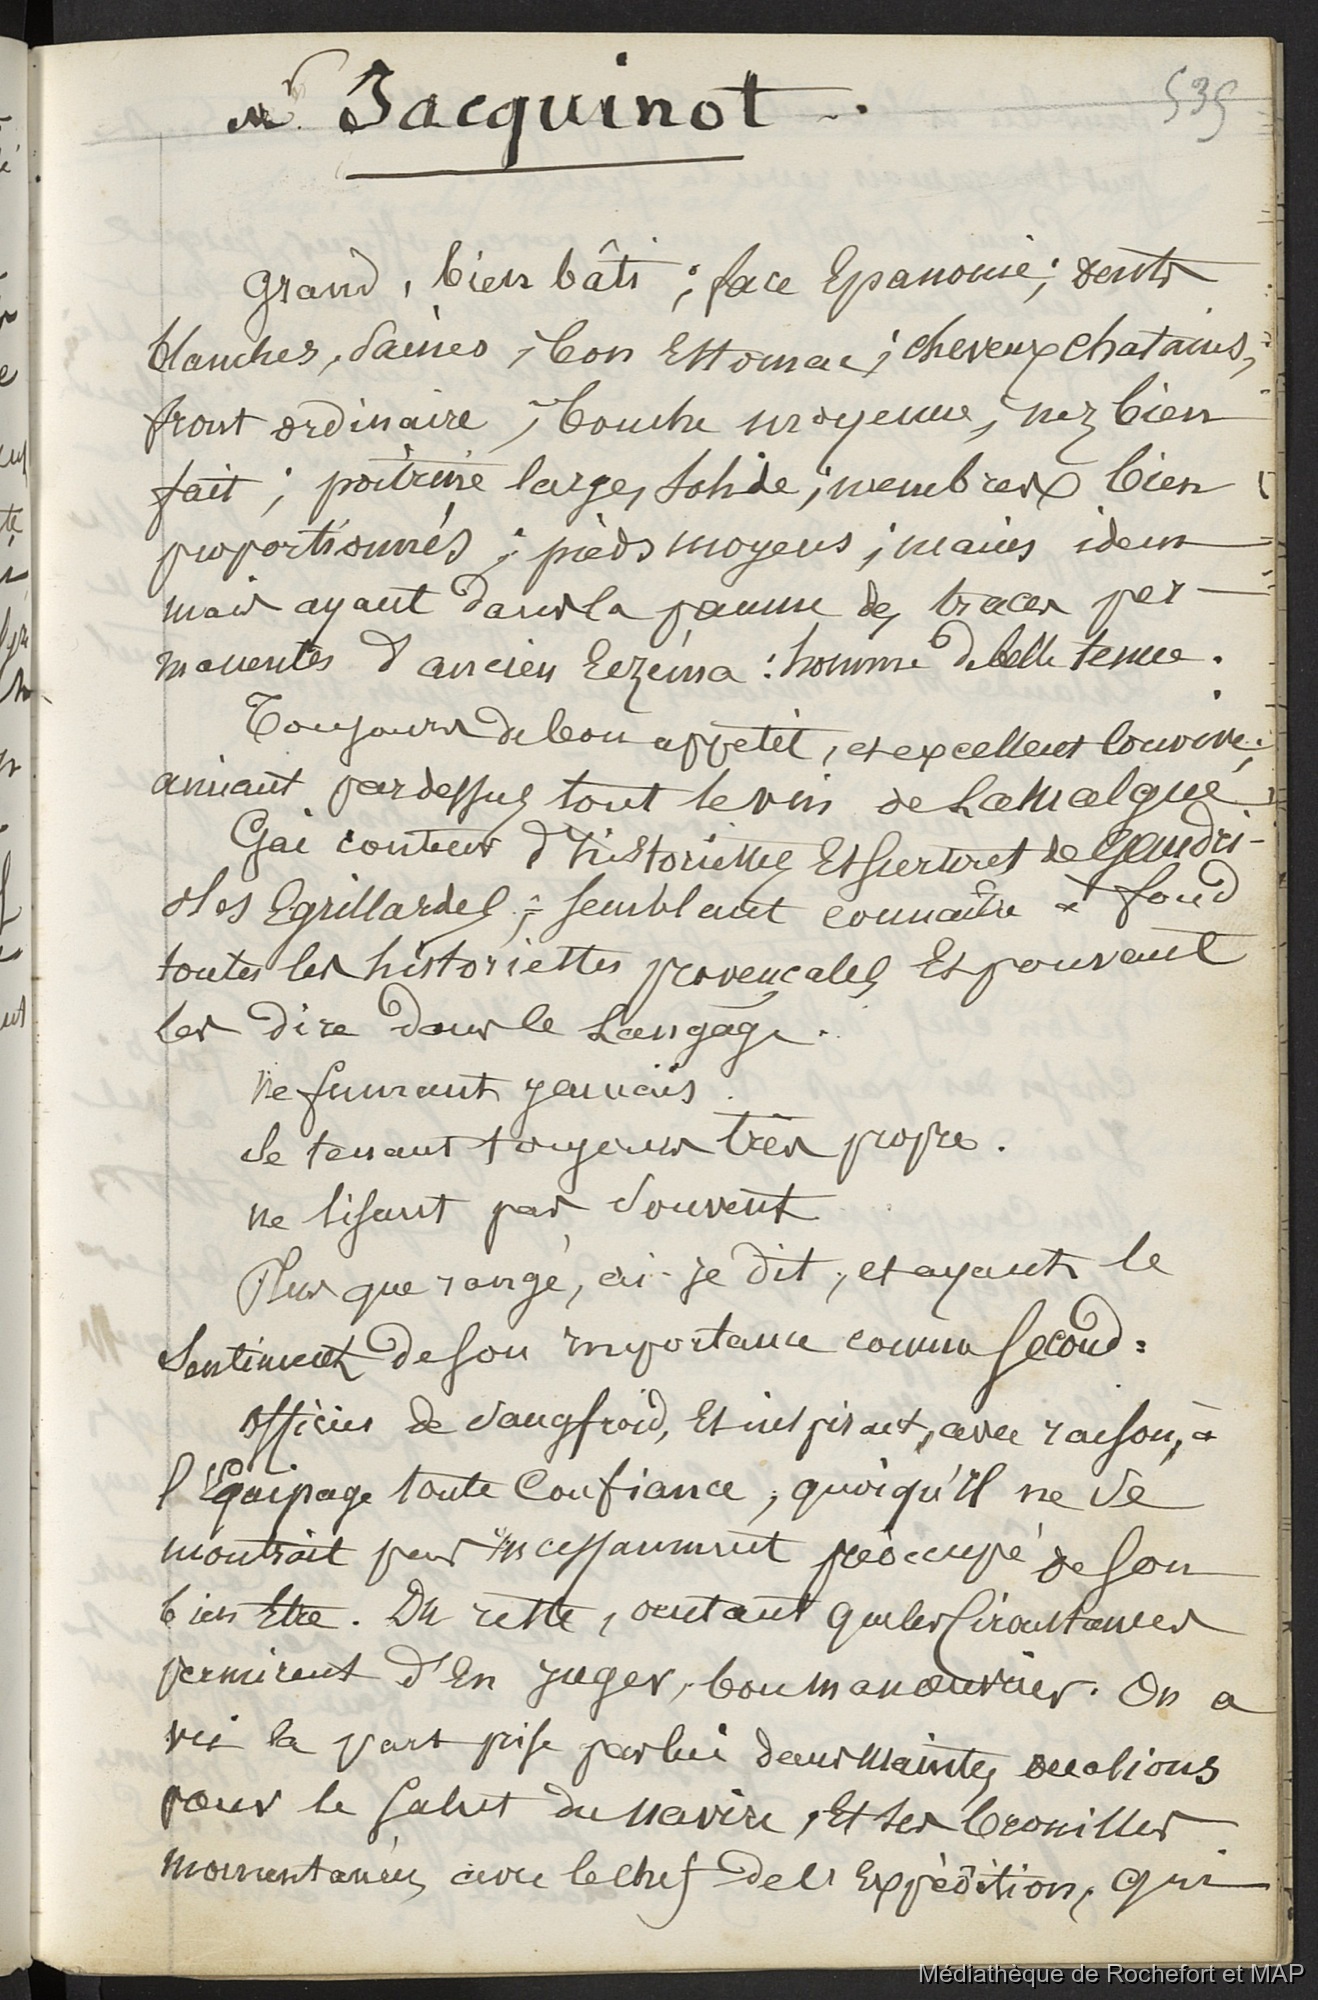 Mr Jacquinot.
535
Grand, bien bâti ; face Epanouie ; dents
blanches, saines ; bon Estomac ; cheveux chatains,
front ordinaire ; bouche moyenne, nez bien
fait ; poitrine large, solide ; membres bien
proportionnés ; pieds moyens ; mains idem
mais ayant dans la paume des traces per-
manentes d'ancien Eczéma : homme de belle tenue.
Toujours de bon appetit, et excellent convive,
aimant pardessus tout le vin de Lamalgue
Gai conteur d'historiettes Et surtout de Gaudri-
oles Egrillardes ; semblant connaître à fond
toutes les historiettes provençales Et pouvant
les dire dans le Langage.
Ne fumant jamais.
Se tenant toujours très propre.
Ne lisant pas souvent
Plus que rangé, ai-je dit, et ayant le
Sentiment de son importance comme second :
officier de sangfroid, Et inspirant, avec raison, à
l'Equipage toute Confiance, quoiqu'Il ne se
montrait pas incessamment préoccupé de son
bien Etre. Du reste, autant que les Circonstances
permirent d'En juger, bon manoeuvrier. On a
vu la part prise par lui dans maintes
pour le salut du navire, Et ses brouilles
momentanées avec le chef de l'Expédition, qui
Médiathèque de Rochefort et MAP